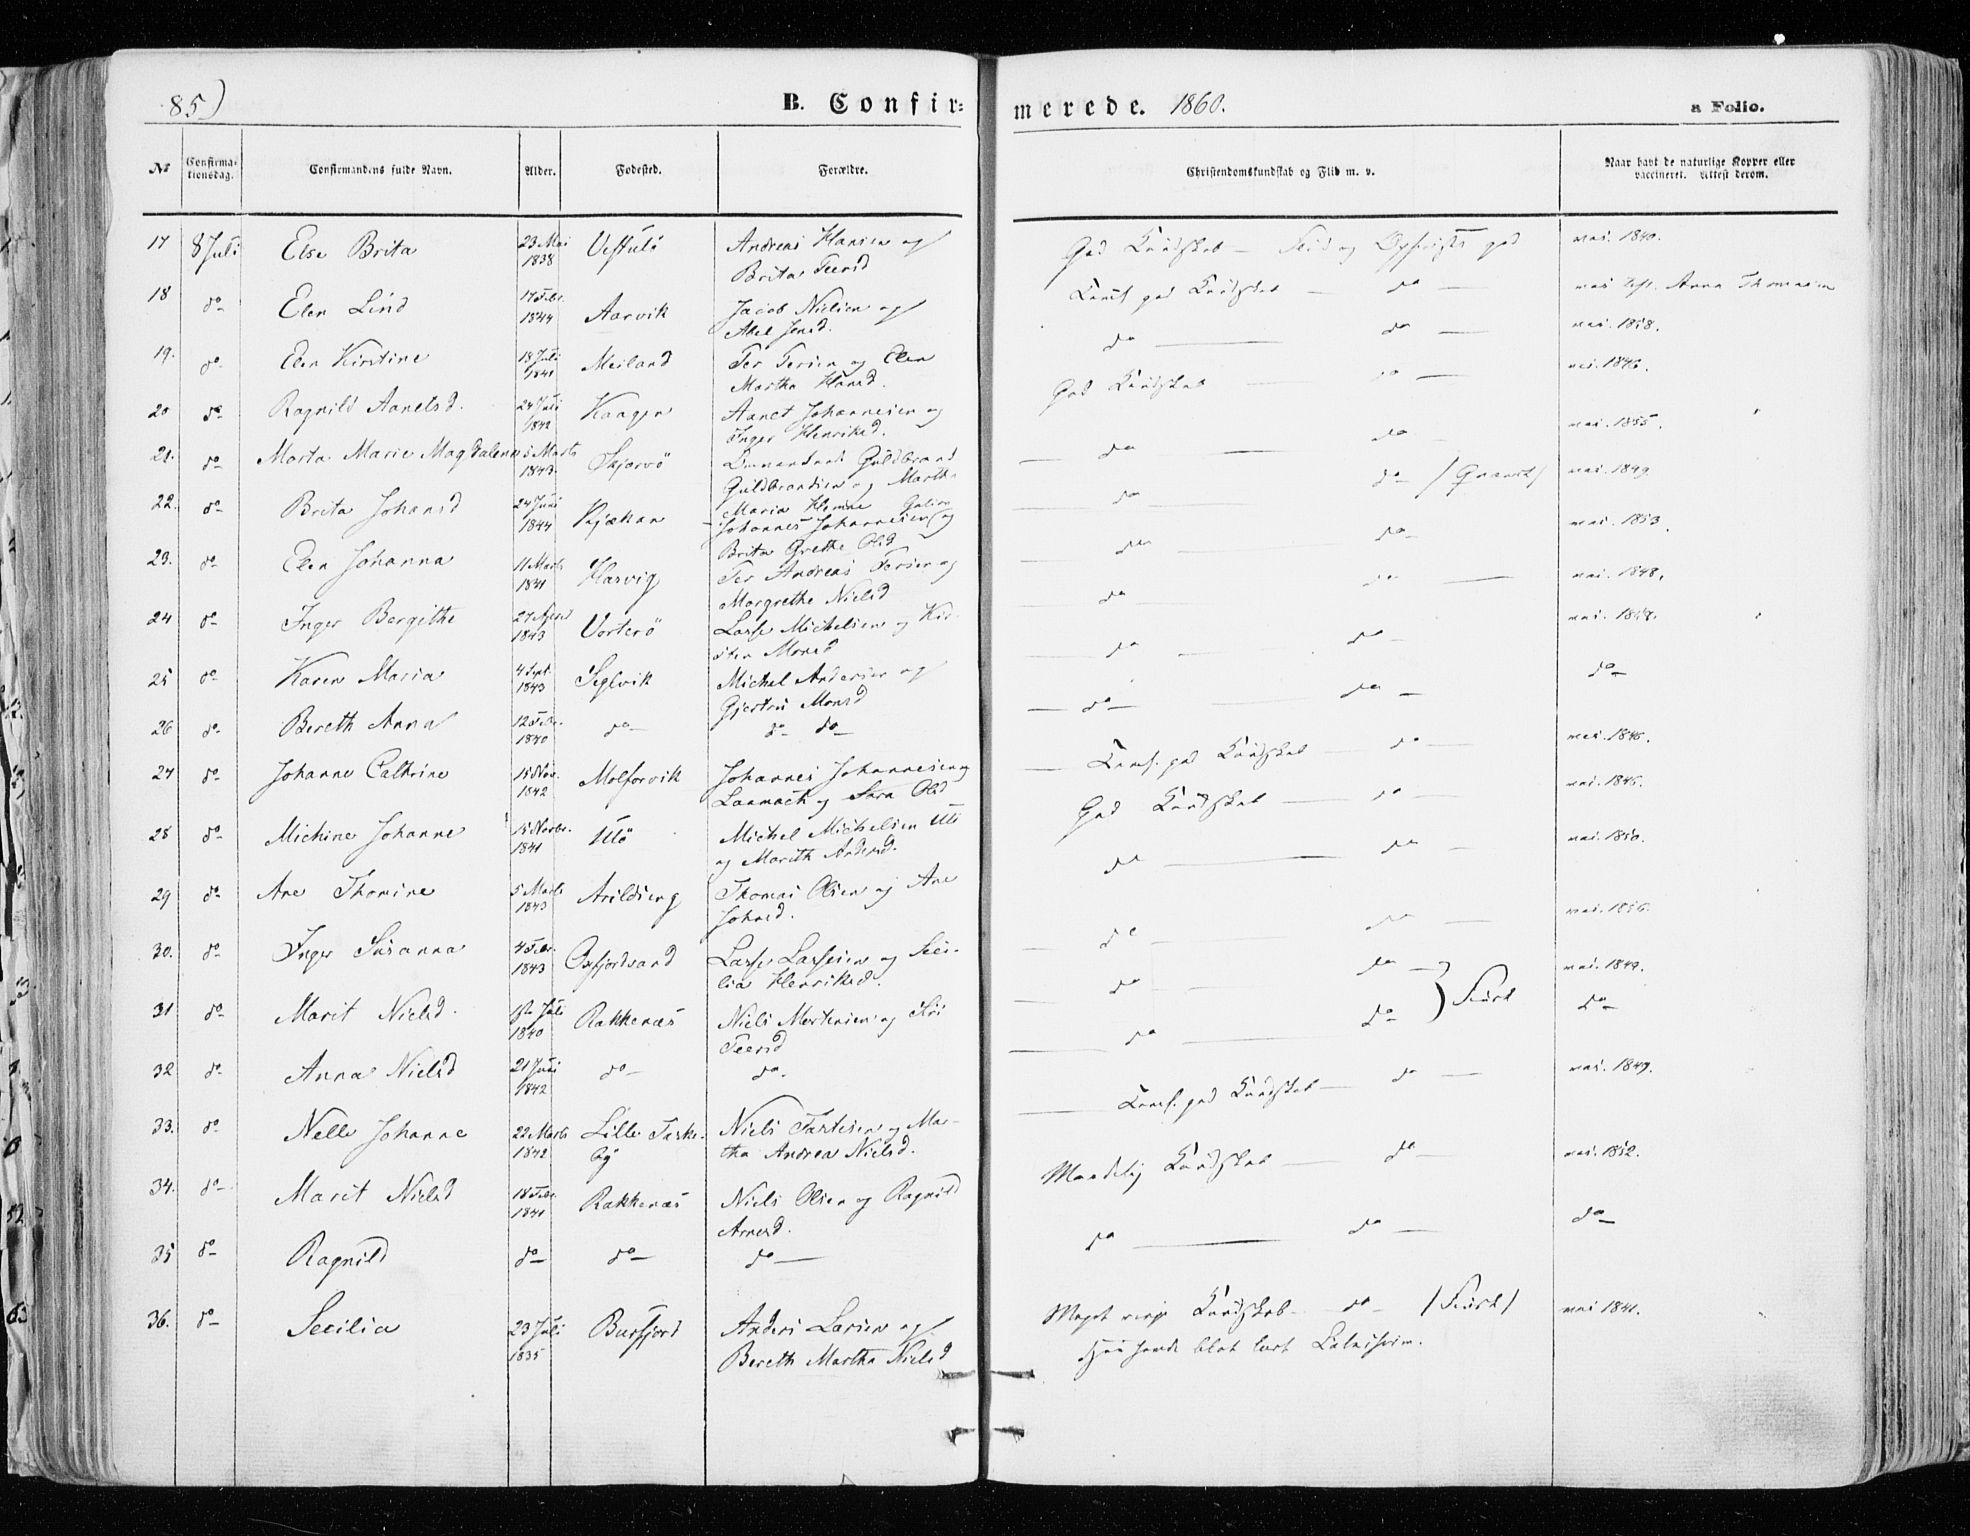 85)
B. Confir=
merede. 1860.
a Folio.
№
Confirma-
tionsdag.
Confirmandens fulde Navn.
Alder.
Fødested.
Forældre.
Christendomskundskab og Flid m. v.
Naar havt de naturlige Kopper eller
vaccineret. Attest derom.
17 8 Juli Else Brita 23 Mai 1838 Andreas Hansen og
Brita Peersd
God Kundskab — Flid og god vac. 1840.
18 do Elen Lind 17 Febr. 1844 Aarvik Jacob Nielsen og
Jonsd.
god Kundskab — do — vac. Anna Thomasen
19. do Elen Kirstine 18 Juli 1841 Meiland Per Persen og Elen
Martha Hansd.
do — do — vac. 1858.
20 do Ragnild Aanetsd. 24 Juli 1842 Kaagen Aanet Johannesen og
Inger Henriksd.
God Kundskab — do — vac. 1846.
21. do Marta Marie Magdalena 5 Marts 1843. Skjervø Guldbrand
Guldbrandsen og Martha
Maria
do — do — vac. 1855.
22. do Brita Johansd 24 Juni 1844 Johannes Johannesen og
Brita Grethe Olsd
do — do (Quænsk) vac. 1849
23. do Elen Johanna 11 Marts 1841 Havvig Per Andreas Persen og
Margrethe Nielsd
do — do — vac. 1853.
24 do Inger Bergithe 27 April 1843 Vorterø Lasse Michelsen og Kir-
sten Monsd
do — do — vac. 1848.
25 do Karen Maria 4 Sept. 1843 Seglvik Michel Andersen og
Gjertru Monsd
do — do —
26 do Bereth Anna 12 Febr. 1840 do — do do —
do — do — do —
27 do Johanne Cathrine 15 Nov. 1842 Molforvik Johannes Johannesen
og Sara Olsd
god Kundskab — do — vac. 1846.
28 do Michine Johanne 15 Novbr. 1841 Ulø Michel Michelsen
og Marith Andersd.
God Kundskab — do — vac. 1846.
29 do Ane Thomine 5 Marts 1843 Arildseng Thomas Olsen og Ane
Johnsd.
do — do — vac. 1850.
30. do Inger Susanna 4 Febr. 1843 Oxfjordsand Lasse Lassesen og Seci-
lia Henriksd.
do — do — vac. 1856.
31 do Marit Nielsd. Juli 1840 Rakkenæs Niels Mortensen og Siri
Peersd
do — do — vac. 1849.
32 do Anna Nielsd 21 Juni 1842 do — do.
do — do do —
33. do Nelle Johanne 22 Marts 1842 Lille Taske-
by
Niels Tastesen og Mar-
tha Andrea Nielsd.
god Kundskab — do — vac. 1849.
34. do — Marit Nielsd 18 Febr. 1841 Rakkenæs Niels Olsen og Ragnild
Arnesd.
Maadelig Kundskab — do — vac. 1852.
35 do Ragnild do do — do —
do — do — do —
36. do Secilia 23 Juli 1835 Burfjord Anders Larsen og
Bereth Martha Nielsd
Meget ringe Kundskab — do — vac 1841.
Hun havde blot lært